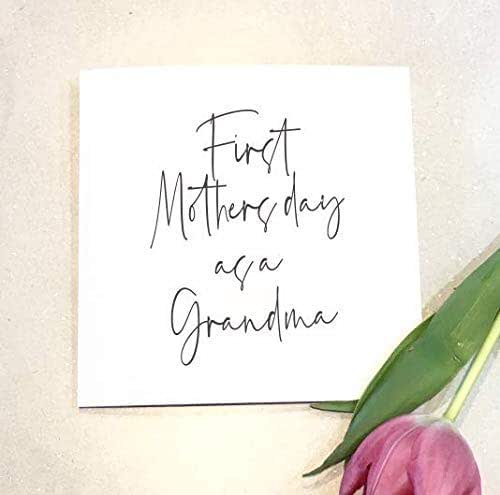 First
Mothers day
as a
Grandma